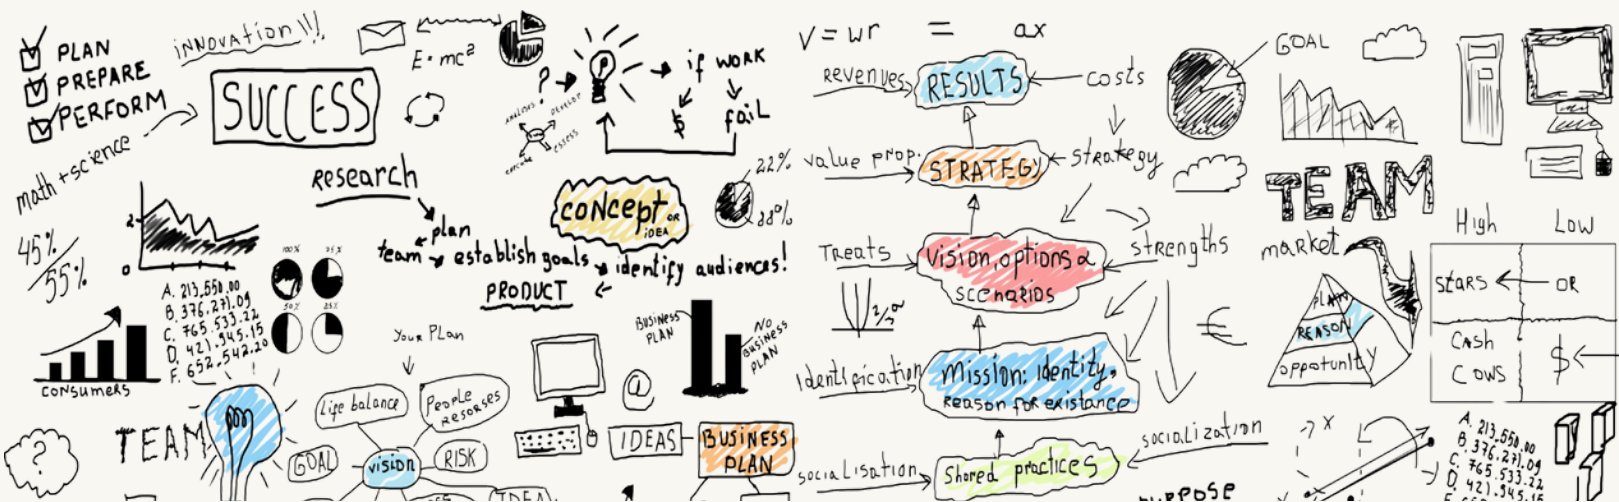 PLAN
PREPARE
PERFORM
INNOVATION!!!
E=mc²
math+science
SUCCESS
?
if WORK
$
fail
Research
plan
team
establish goals
identify audiences!
PRODUCT
concept OR
iDEA
22%
45%
55%
2
0
100%
75%
50%
25%
A. 213,550,00
B. 376.271.09
C. 765.533.22
D. 421.945.15
F. 652.542.20
CONSUMERS
Your Plan
BUSINESS
PLAN
NO
BUSINESS
PLAN
?
TEAM
Life balance
People
resorses
GOAL
vision
RISK
IDEA
@
IDEAS
BUSINESS
PLAN
V=wr = ax
revenues
RESULTS
costs
value prop.
STRATEGY
strategy
Treats
vision, options &
scenarios
strengths
Identification
Mission: identity,
reason for existance
socialisation
Shared practices
socialization
GOAL
TEAM
market
PLAN
REASON
opportunity
€
High
Low
stars
OR
Cash
Cows
$
X
A. 213,550,00
B. 376.271.09
C. 765.533.22
D. 421.945.15
PURPOSE